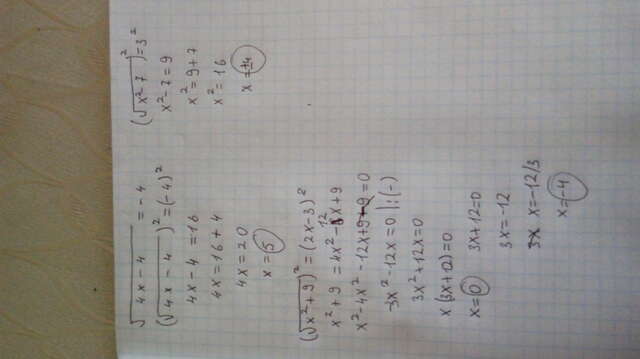 √(4x - 4) = -4
(√(4x - 4))² = (-4)²
4x - 4 = 16
4x = 16 + 4
4x = 20
x = 5
(√(x² - 7))² = 3²
x² - 7 = 9
x² = 9 + 7
x² = 16
x = ±4
(√(x² + 9))² = (2x - 3)²
x² + 9 = 4x² - 12x + 9
x² - 4x² - 12x + 9 - 9 = 0
-3x² - 12x = 0 |:(-)
3x² + 12x = 0
x (3x + 12) = 0
x = 0 3x + 12 = 0
3x = -12
3x x = -12/3
x = -4